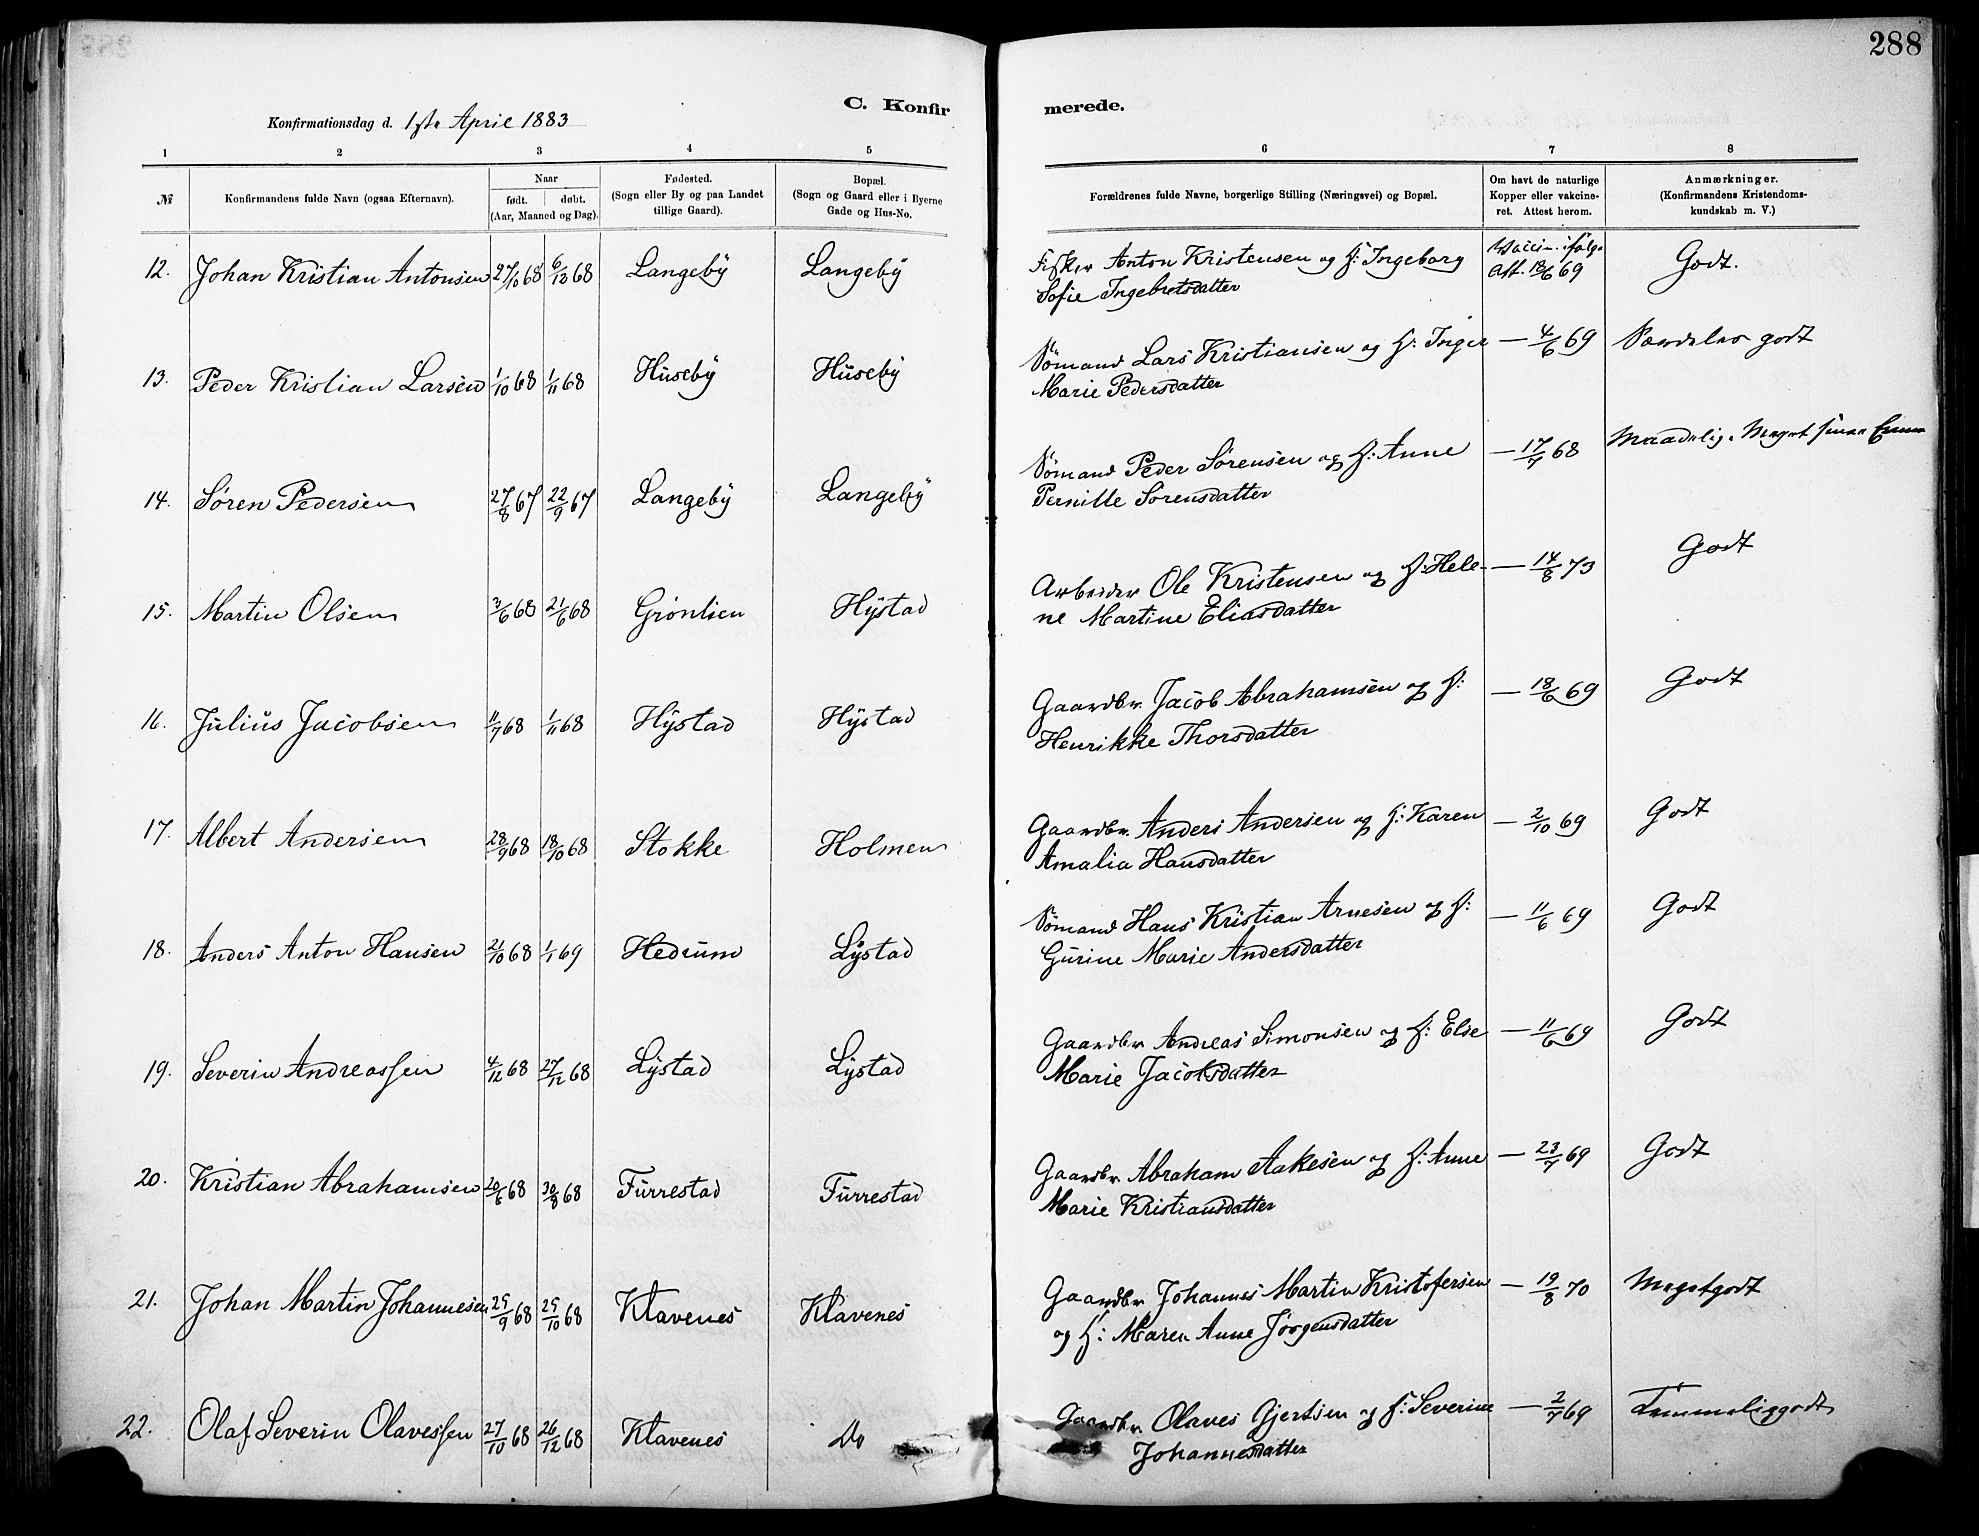 288
C. Konfirmerede.
Konfirmationsdag d. 1ste April 1883
1 2 3 4 5 6 7 8
№ Konfirmandens fulde Navn (ogsaa Efternavn). Naar født. døbt. (Aar, Maaned og Dag). Fødested. (Sogn eller By og paa Landet tillige Gaard). Bopæl. (Sogn og Gaard eller i Byerne Gade og Hus-No. Forældrenes fulde Navne, borgerlige Stilling (Næringsvei) og Bopæl. Om havt de naturlige Kopper eller vakcineret. Attest herom. Anmærkninger. (Konfirmandens Kristendomskundskab m. V.)
12. Johan Kristian Antonsen 27/10 68 6/12 68 Langeby Langeby Fisker Anton Kristensen og H: Ingeborg Vaccin. ifølge Godt.
Sofie Ingebretsdatter Att. 18/6 69
13. Peder Kristian Larsen 1/10 68 1/11 68 Huseby Huseby Sømand Lars Kristiansen og H: Inger — 4/6 69 Særdeles godt
Marie Pedersdatter
14. Søren Pedersen 27/8 67 22/9 67 Langeby Langeby Sømand Peder Sørensen og H: Anne — 17/7 68 Maadelig. Meget
Pernille Sørensdatter
15. Martin Olsen 3/6 68 21/6 68 Grönlien Hystad Arbeider Ole Kristensen og H: Hele- — 14/8 73 Godt
ne Martine Eliasdatter
16. Julius Jacobsen 11/7 68 1/11 68 Hystad Hystad Gaardbr. Jacob Abrahamsen og H: — 18/6 69 Godt
Henrikke Thorsdatter
17. Albert Andersen 28/9 68 18/10 68 Stokke Holmen Gaardbr. Anders Andersen og H: Karen — 2/10 69 Godt
Amalia Hansdatter
18. Anders Anton Hansen 21/10 68 1/1 69 Hedrum Lystad Sømand Hans Kristian Arnesen og H: — 11/6 69 Godt
Gurine Marie Andersdatter
19. Severin Andreassen 4/12 68 27/12 68 Lystad Lystad Gaardbr Andreas Simonsen og H: Else — 11/6 69 Godt
Marie Jacobsdatter
20. Kristian Abrahamsen 20/6 68 30/8 68 Furrestad Furrestad Gaardbr. Abraham Aakesen og H: Anne — 23/7 69 Godt
Marie Kristiansdatter
21. Johan Martin Johannesen 25/9 68 25/10 68 Klavenes Klavenes Gaardbr Johannes Martin Kristofersen — 19/8 70 Megetgodt
og H: Maren Anne Jørgensdatter
22. Olaf Severin Olavessen 27/10 68 26/12 68 Klavenes Do Gaardbr. Olaves Gjertsen og H: Severine — 2/7 69 Temmeliggodt
Johannesdatter